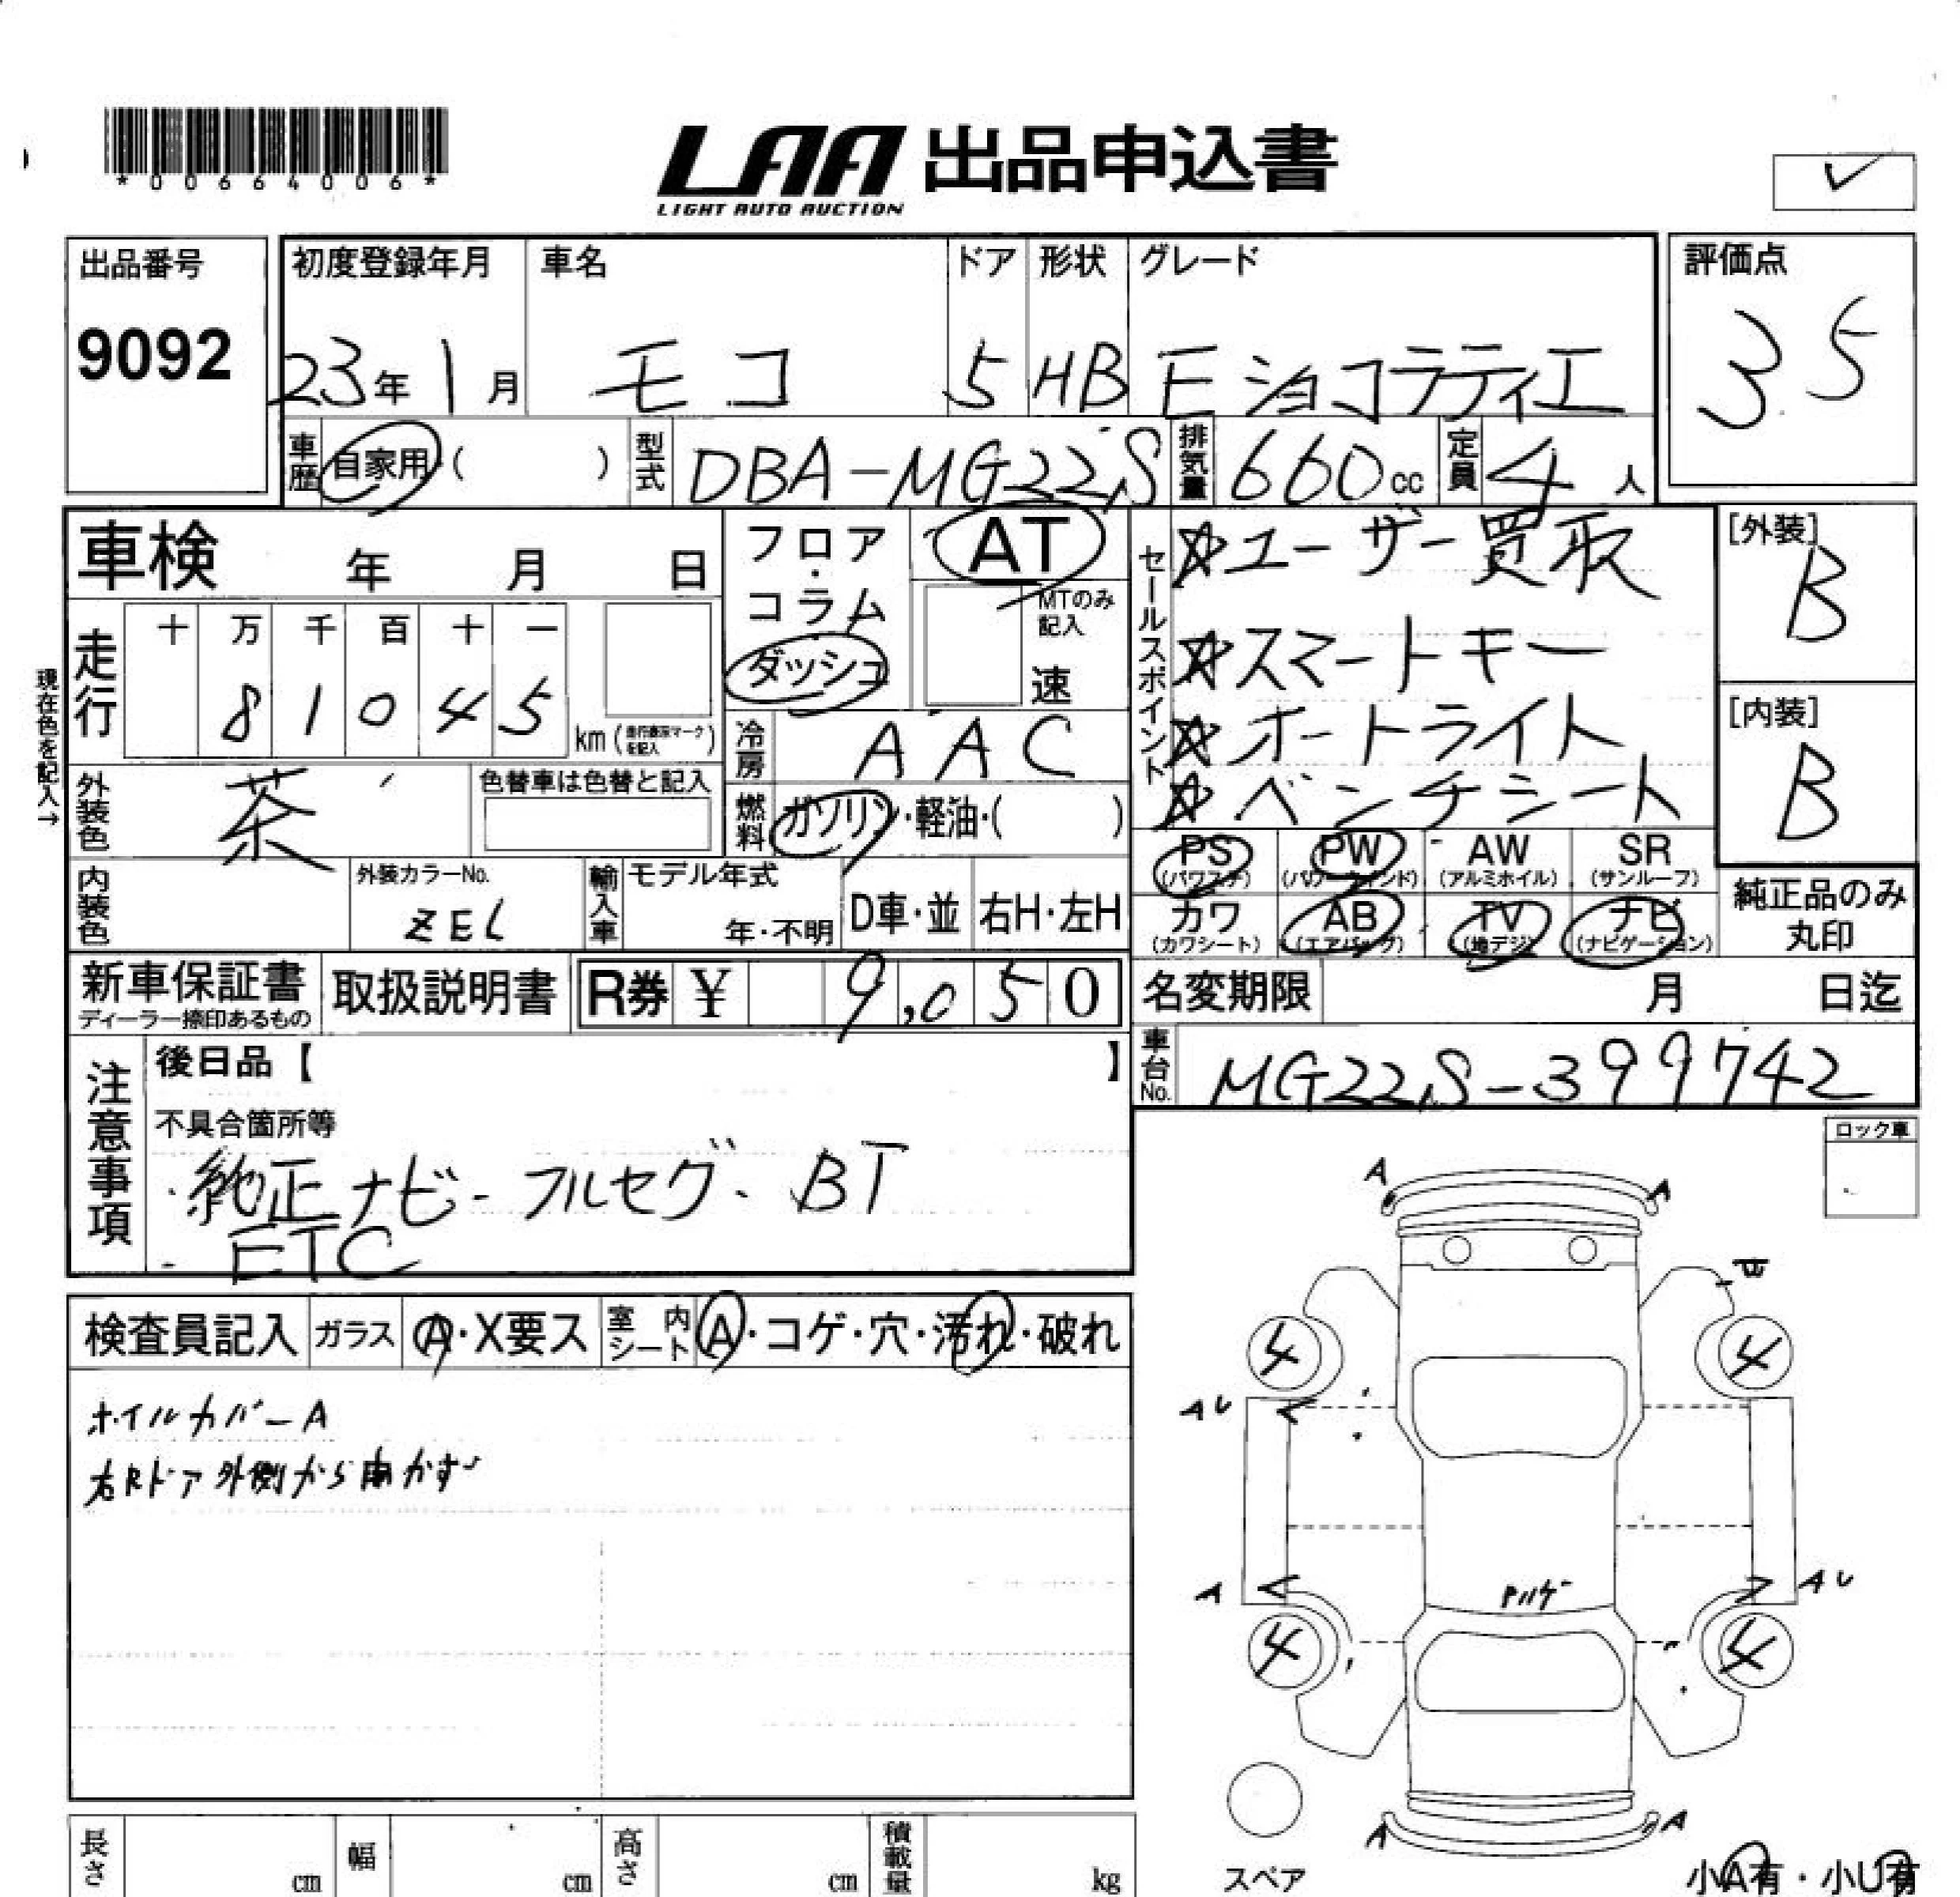 *00664006*
LAA 出品申込書
LIGHT AUTO AUCTION
出品番号
9092
初度登録年月 車名 ドア 形状 グレード
23年 1月 モコ 5 HB E ショコラティエ
評価点
3 5
車歴 自家用・( ) 型式 DBA-MG22S 排気量 660cc 定員 4人
車検 年 月 日
フロア・コラム
ダッシュ
AT
MTのみ記入
速
セールスポイント
☆ユーザー買取
☆スマートキー
☆オートライト
☆ベンチシート
[外装]
B
[内装]
B
現在色を記入→
走行 十 万 千 百 十 一
8 1 0 4 5 km (走行表示マークを記入)
冷房 AAC
外装色 茶 色替車は色替と記入
燃料 ガソリン・軽油・( )
内装色 外装カラーNo. ZEL
輸入車 モデル年式 年・不明 D車・並 右H・左H
PS (パワステ) PW (パワーウインド) AW (アルミホイル) SR (サンルーフ)
カワ (カワシート) AB (エアバッグ) TV (地デジ) ナビ (ナビゲーション)
純正品のみ丸印
新車保証書 ディーラー捺印あるもの 取扱説明書 R券 ¥ 9,050
名変期限 月 日迄
車台No. MG22S-399742
注意事項 後日品【 】
不具合箇所等
純正ナビ-フルセグ-BT
ETC
ロック車
検査員記入 ガラス A・X要ス 室内シート A・コゲ・穴・汚れ・破れ
ホイルカバーA
右Rドア外側から開かず
A A
4 4
AU
A AU
4 4
A A
スペア
小A有・小U有
長さ cm 幅 cm 高さ cm 積載量 kg